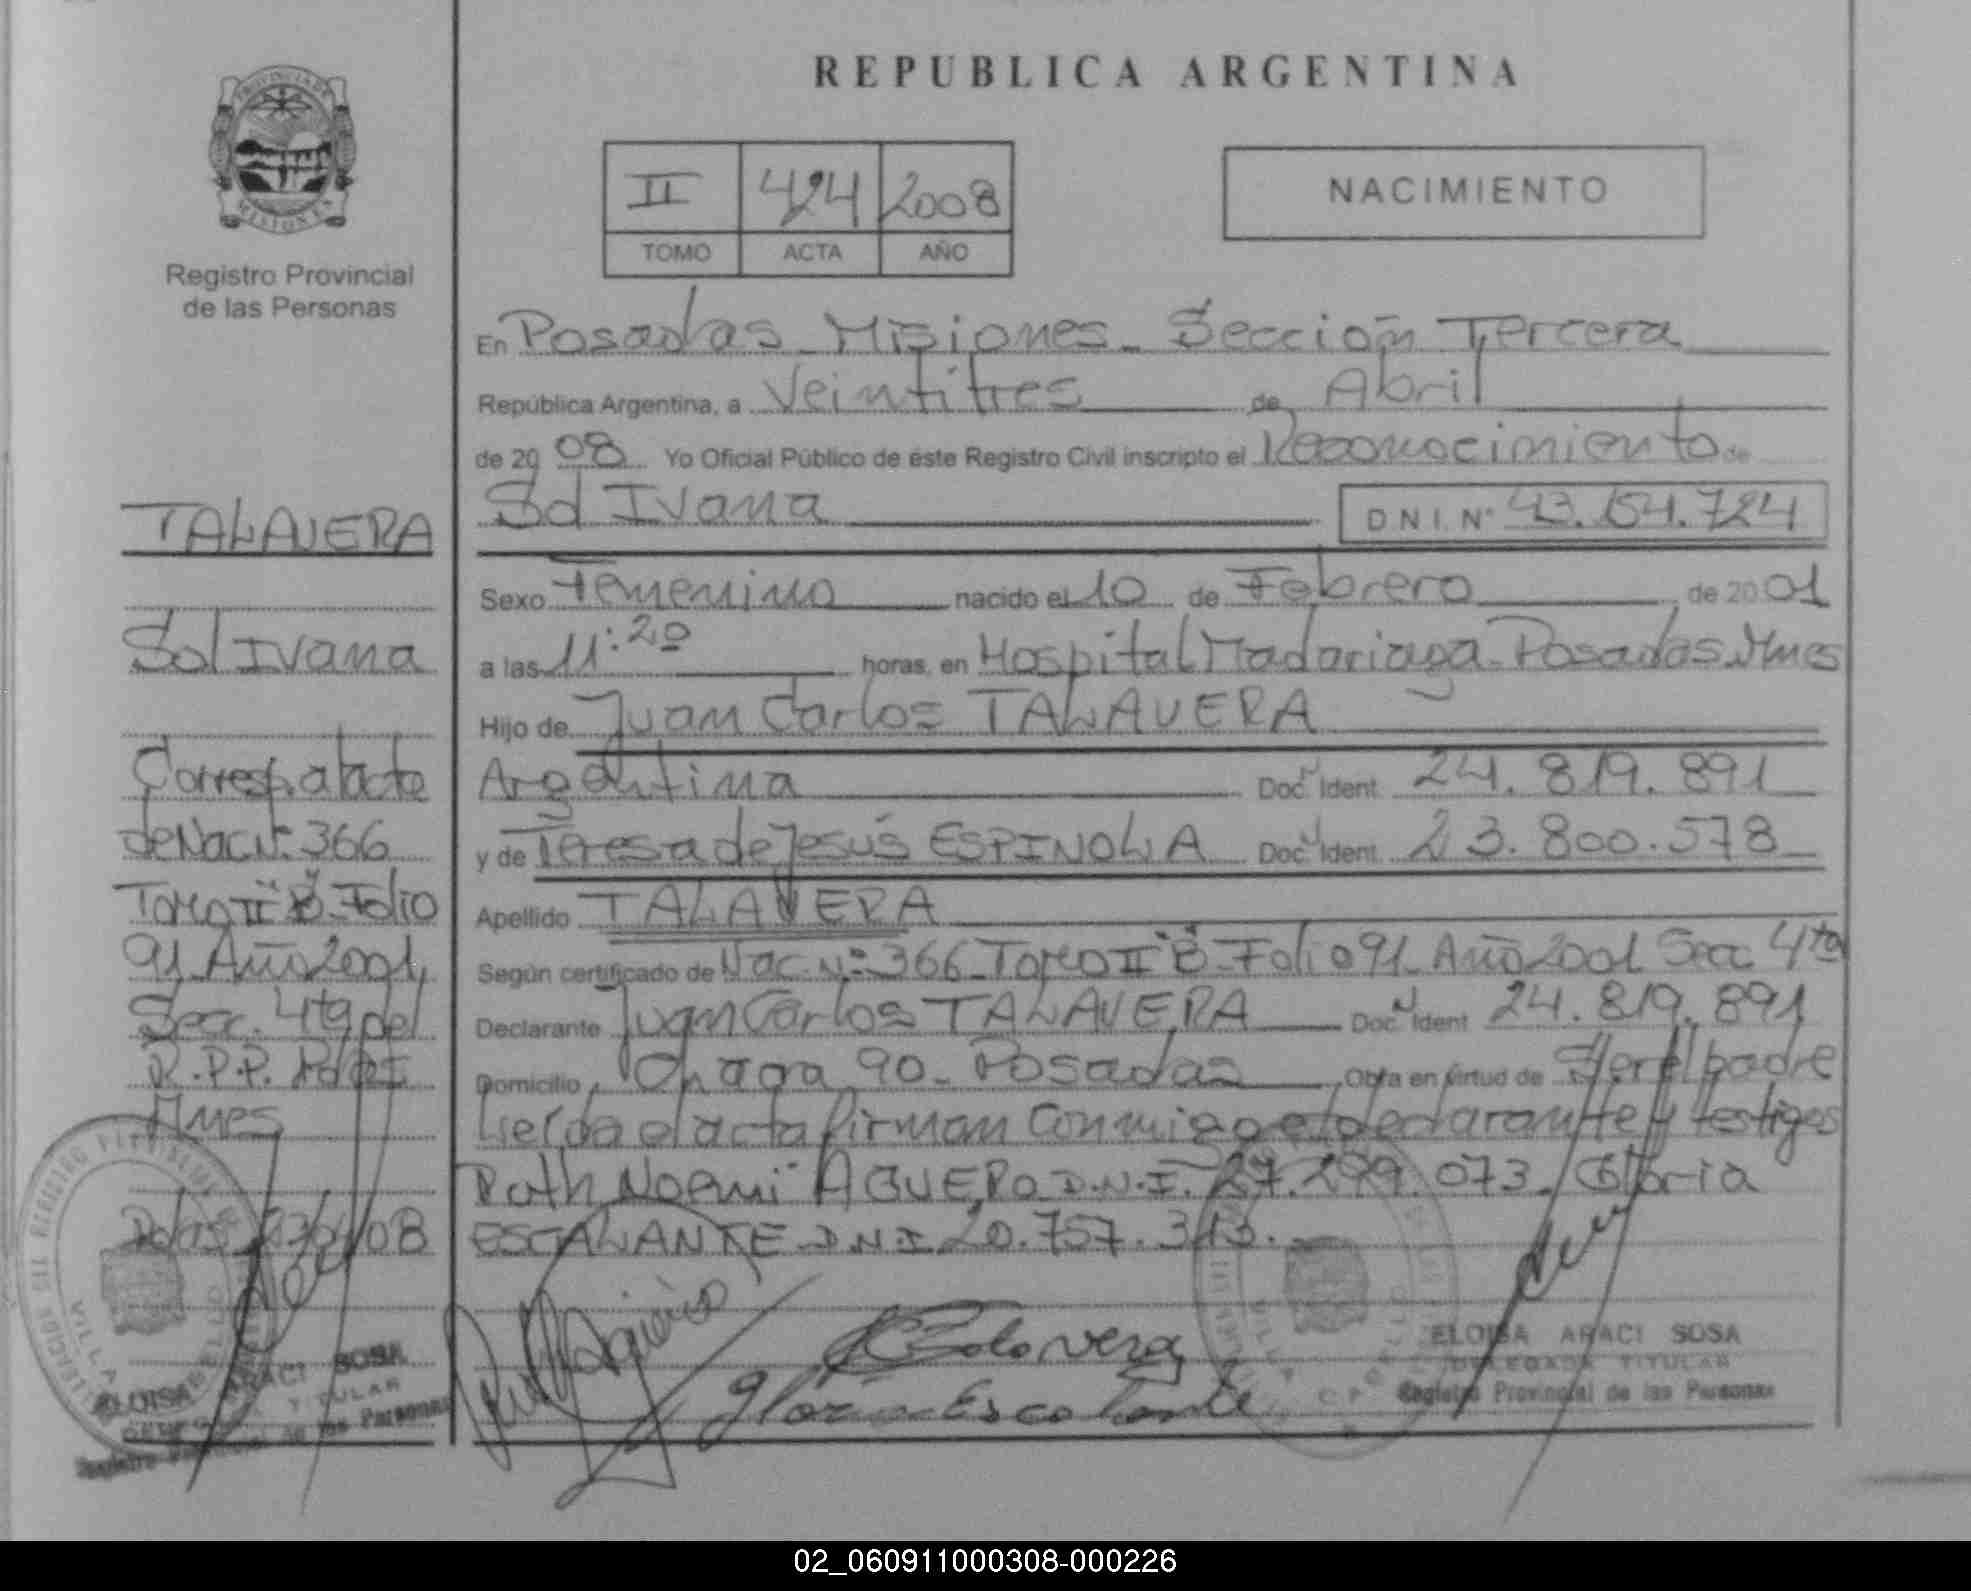 REPUBLICA ARGENTINA
II 424 2008
TOMO ACTA AÑO
NACIMIENTO
PROVINCIA DE
MISIONES
Registro Provincial
de las Personas
TALAVERA
Sol Ivana
Corresp. al acta
de Nac. Nº: 366
Tomo II "B" Folio
91 Año 2001
Secc. 4ta del
R.P.P. Pdas
Mnes
Pdas 23/04/08
ELOISA ARACI SOSA
TITULAR
Registro Provincial de las Personas
En Posadas Misiones Sección Tercera
República Argentina, a Veintitres de Abril
de 2008 Yo Oficial Público de este Registro Civil inscripto el Reconocimiento de
Sol Ivana D N I. Nº 43.154.724
Sexo Femenino nacido el 10 de Febrero de 2001
a las 11:20 horas, en Hospital Madariaga Posadas Mnes
Hijo de Juan Carlos TALAVERA
Argentina Doc. Ident. 24.819.891
y de Teresa de Jesús ESPINOLA Doc. Ident. 23.800.578
Apellido TALAVERA
Según certificado de Nac. Nº 366 Tomo II "B" Folio 91 Año 2001 Secc 4ta
Declarante Juan Carlos TALAVERA Doc. Ident. 24.819.891
Domicilio Chaga 90 Posadas Obra en virtud de Ser el padre
Leída el acta firman conmigo el declarante y testigos
Ruth Noemi AGUERO D.N.I. 27.299.073 Gloria
ESCALANTE D.N.I 20.757.313.
Talavera
Gloria Escalante
ELOISA ARACI SOSA
DELEGADA TITULAR
Registro Provincial de las Personas
02_060911000308-000226